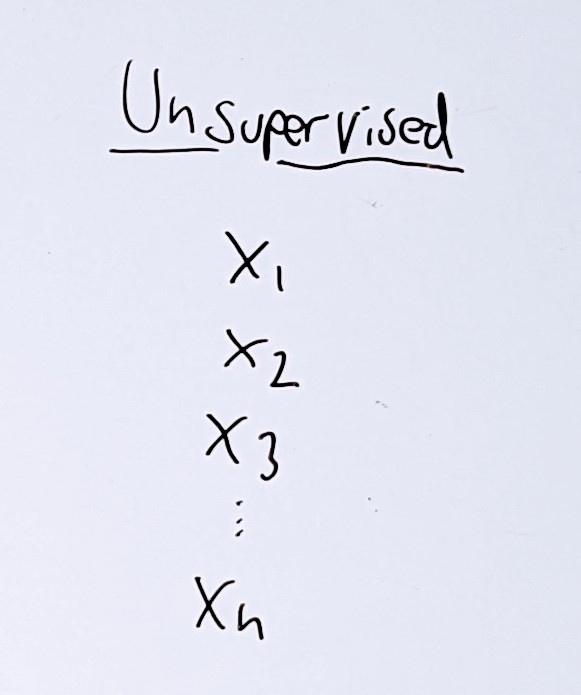 Unsupervised
X₁
X₂
X₃
⋮
Xₙ